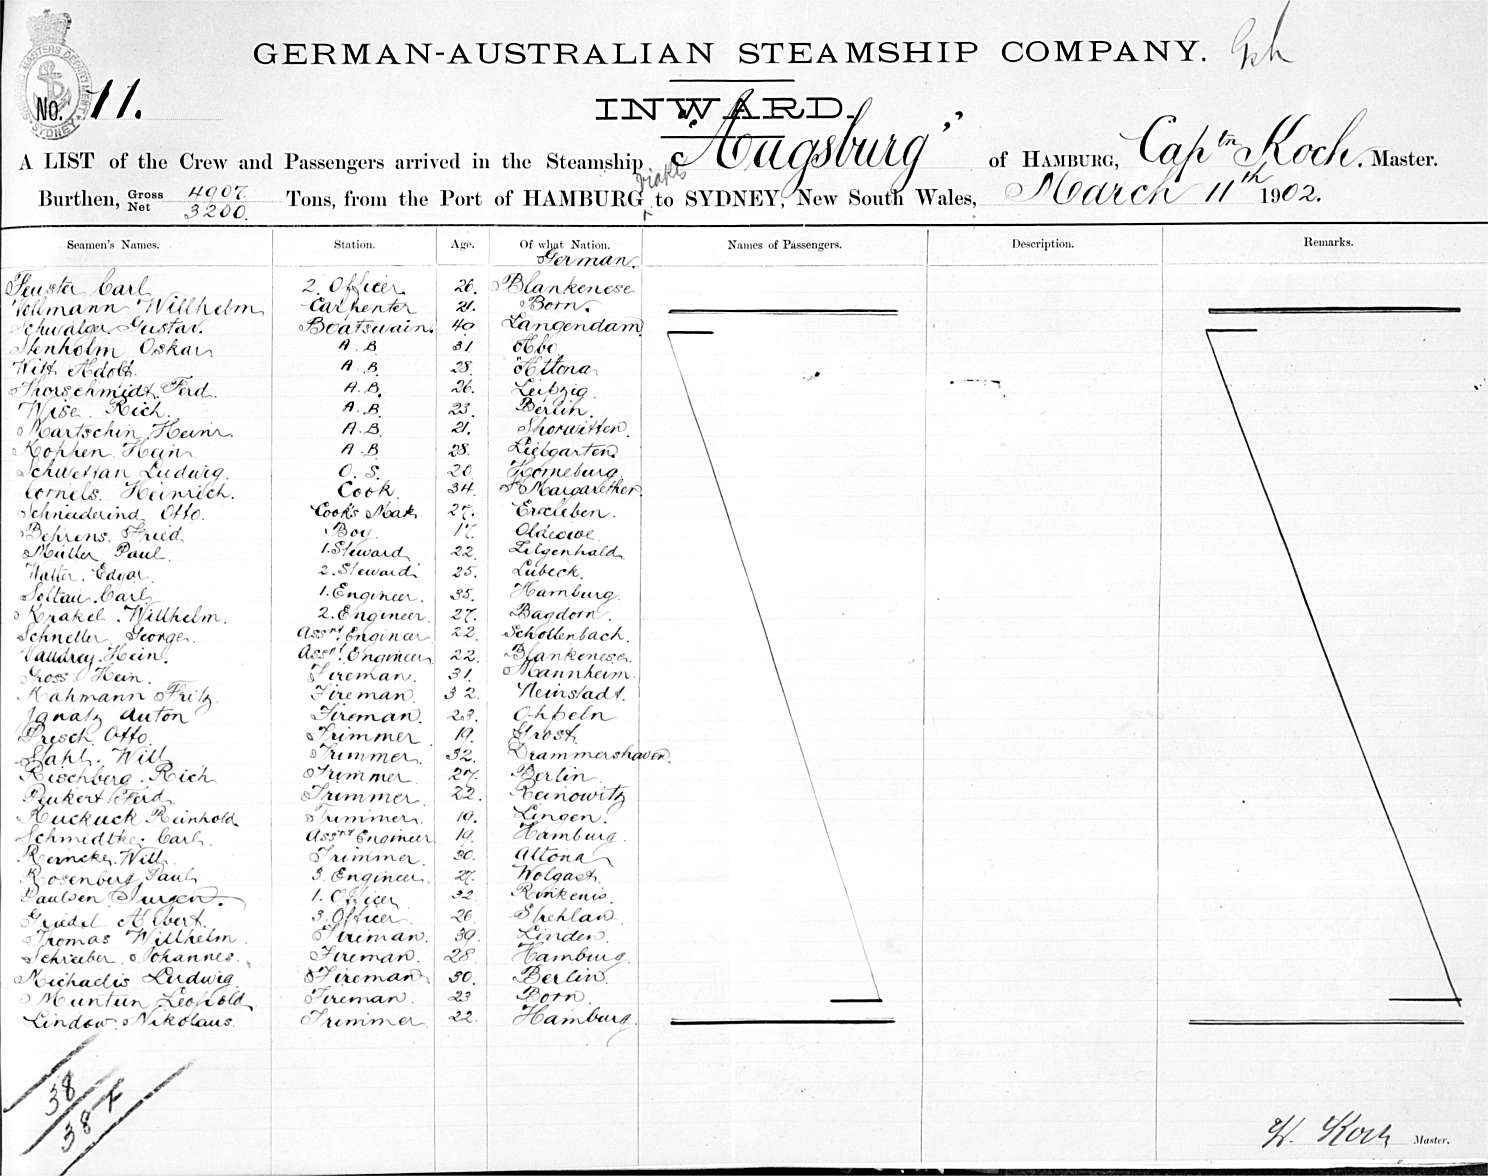 GERMAN-AUSTRALIAN STEAMSHIP COMPANY.
SHIPPING MASTERS DEPARTMENT SYDNEY
No. 11.
INWARD.
A LIST of the Crew and Passengers arrived in the Steamship "Augsburg" of HAMBURG, Captn Koch. Master.
Burthen, Gross 4907. Net 3200. Tons, from the Port of HAMBURG to SYDNEY, New South Wales, March 11th 1902.
Seamen's Names. Station. Age. Of what Nation. Names of Passengers. Description. Remarks.
German.
Feuster Carl 2. Officer. 26. Blankenese
Vollmann Willhelm Carpenter 21. Born.
Schwalger Gustav. Boatswain. 40 Langendam
Stenholm Oskar A.B. 31 Abo
Witt Adolf. A.B. 28. Altona
Thorschmidt Ferd. A.B. 26. Leipzig.
Wise. Rich. A.B. 23. Berlin.
Martschin Heinr. A.B. 21. Shorwitten.
Koppen Hein A.B 28. Liebgarten
Schwettan Ludwig. O.S. 20 Horneburg
Cornels. Heinrich. Cook. 34. St Margarethen.
Schneiderind Otto. Cook's Mate 27. Erxleben.
Behrens. Fried Boy. 17.
Müller Paul. 1. Steward 22
Walter. Edgar. 2. Steward 25. Lubeck.
Soltau. Carl 1. Engineer. 35. Hamburg.
Krakel. Willhelm. 2. Engineer 27. Bagdorn.
Schneller George. Assnt. Engineer 22. Schollenbach.
Vaudrey. Hein. Assnt. Engineer 22. Blankenese.
Gross Hein. Fireman. 31. Mannheim.
Kahmann Fritz. Fireman. 32. Neinstadt.
Ignatz Anton Fireman. 23. Oppeln
Dresch Otto Trimmer 19. Grost.
Stahl. Will Trimmer. 32. Drammershaven.
Rischberg. Rich Trimmer 27. Berlin.
Peukert Ferd. Trimmer. 22. Reinowitz
Kuckuck Reinhold Trimmer. 19. Lingen.
Schmidtke. Carl. Assnt Engineer 19. Hamburg.
Rerncke. Will. Trimmer. 30. Altona
Rosenberg Paul 3. Engineer. 27. Wolgast.
Paulsen Jurgen. 1. Officer 32 Rinkenis.
Griedel Albert. 3. Officer. 26 Strehlan
Tromas Willhelm. Fireman. 39. Linden.
Schrieber. Johannes. Fireman. 28 Hamburg.
Michaelis Ludwig. Fireman 30. Berlin.
Muntun Leopold Fireman. 23 Born.
Lindow. Nikolaus. Trimmer 22. Hamburg.
38
38 +
K. Koch Master.